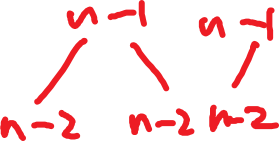 n-1 n-1
n-2 n-2 n-2